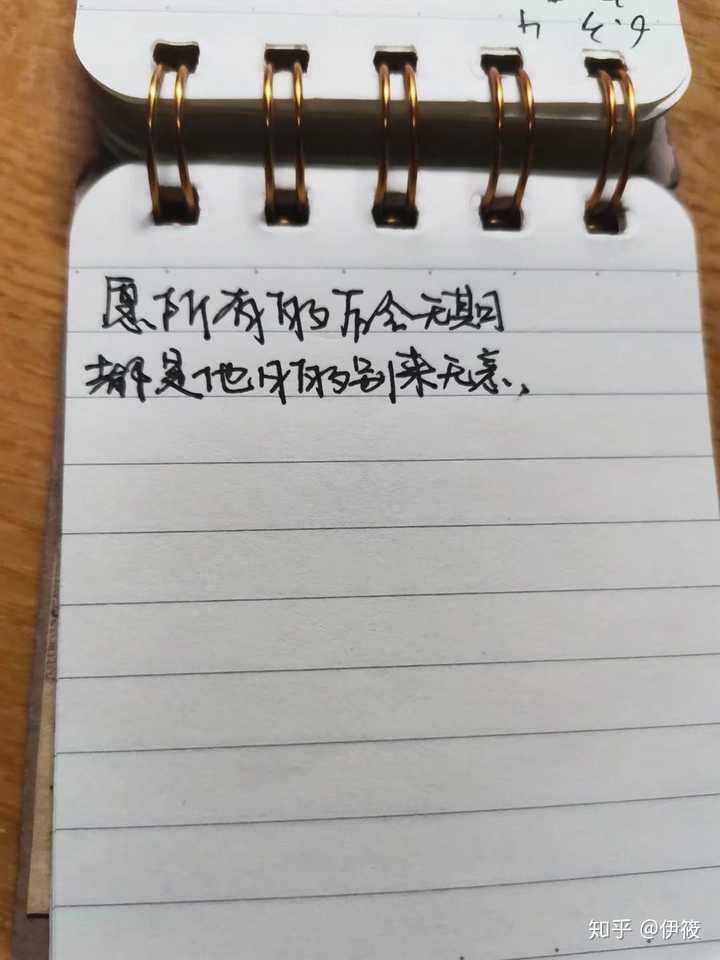 愿所有的后会无期
都是他日的别来无恙、
知乎 @伊筱